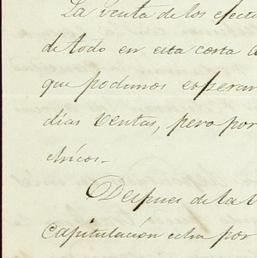 La venta de los efect
de todo en esta corta
que podemos esperar
días ventas, pero por
chicos.-
Despues de la
capitulación por